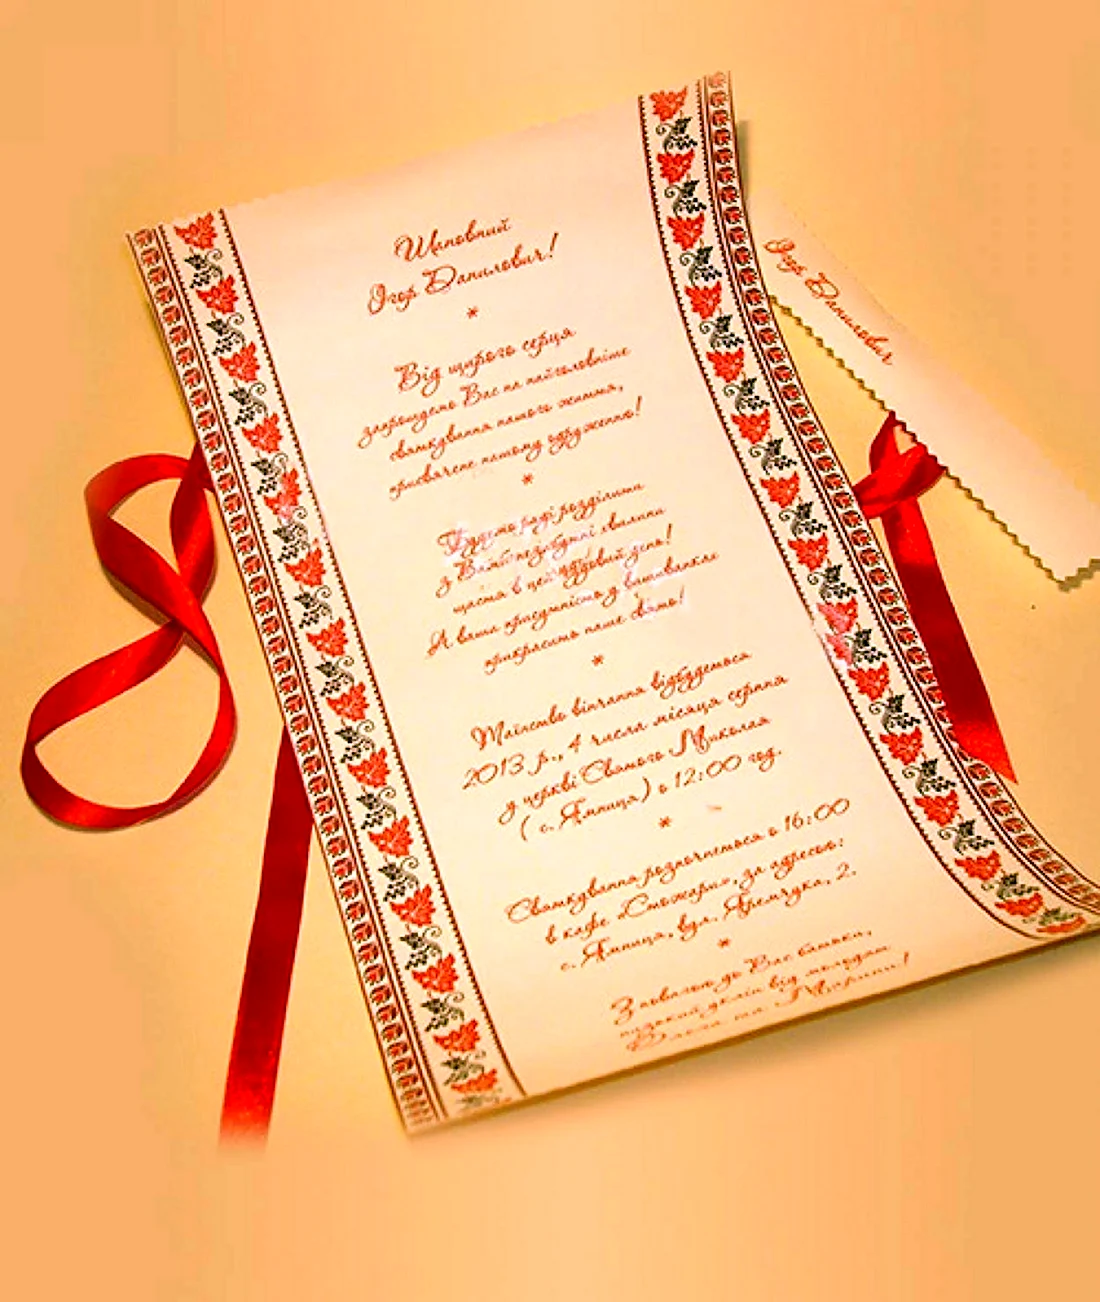 Шановний
Ігор Данилович!
*
Від щирого серця
запрошуємо Вас на найголовніше
святкування нашого життя,
присвячене нашому одруженню!
*
Будемо раді розділити
з Вами незабутні хвилини
щастя в цей чудовий день!
А ваша присутність у вишиванке
прикрасить наше свято!
*
Таїнство вінчання відбудеться
2013 р., 4 числа місяця серпня
у церкві Святого Миколая
( с. Ямниця) о 12:00 год.
*
Святкування розпочнеться о 16:00
в кафе «Стожари», за адресою:
с. Ямниця, вул. Яремчука, 2.
*
З повагою до Вас батьки,
низький уклін від молодят
та Марини!
Ігор Данилович